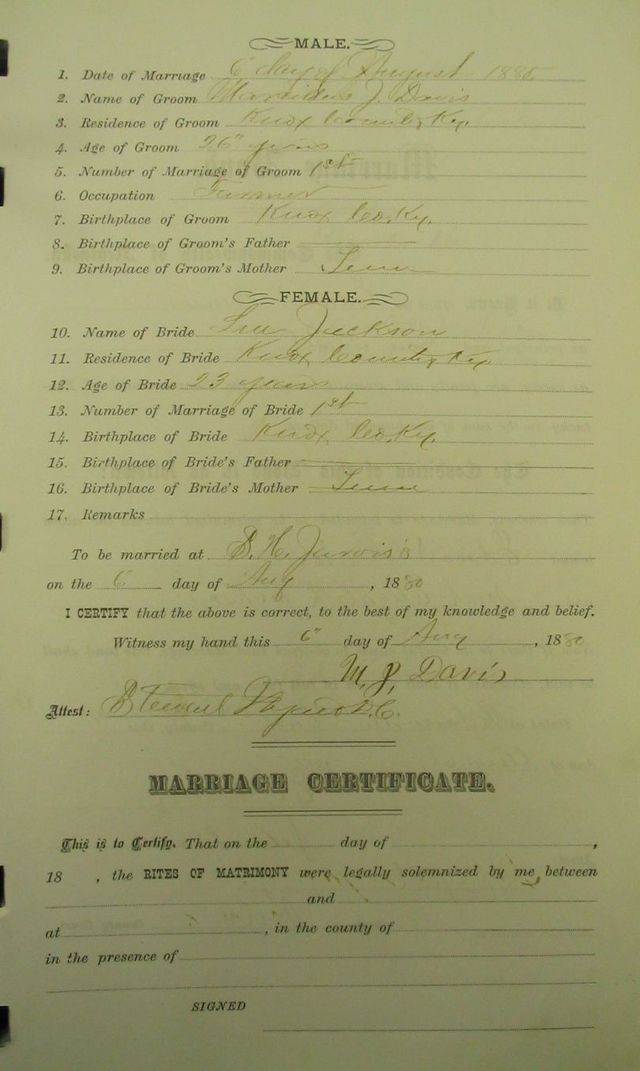 MALE.
1. Date of Marriage 6" day of August 1880
2. Name of Groom J. Davis
3. Residence of Groom Knox County Ky.
4. Age of Groom 26" years
5. Number of Marriage of Groom 1st
6. Occupation Farmer
7. Birthplace of Groom Knox Co. Ky.
8. Birthplace of Groom's Father
9. Birthplace of Groom's Mother Tenn
FEMALE.
10. Name of Bride Jackson
11. Residence of Bride Knox County Ky
12. Age of Bride 23 years
13. Number of Marriage of Bride 1st
14. Birthplace of Bride Knox Co. Ky.
15. Birthplace of Bride's Father
16. Birthplace of Bride's Mother Tenn
17. Remarks
To be married at H. Jarvis's
on the 6 day of Aug , 1880
I CERTIFY that the above is correct, to the best of my knowledge and belief.
Witness my hand this 6" day of Aug , 1880
M. J. Davis
Attest: D.C.
MARRIAGE CERTIFICATE.
This is to Certify, That on the day of ,
18 , the RITES OF MATRIMONY were legally solemnized by me, between
and
at , in the county of
in the presence of
SIGNED